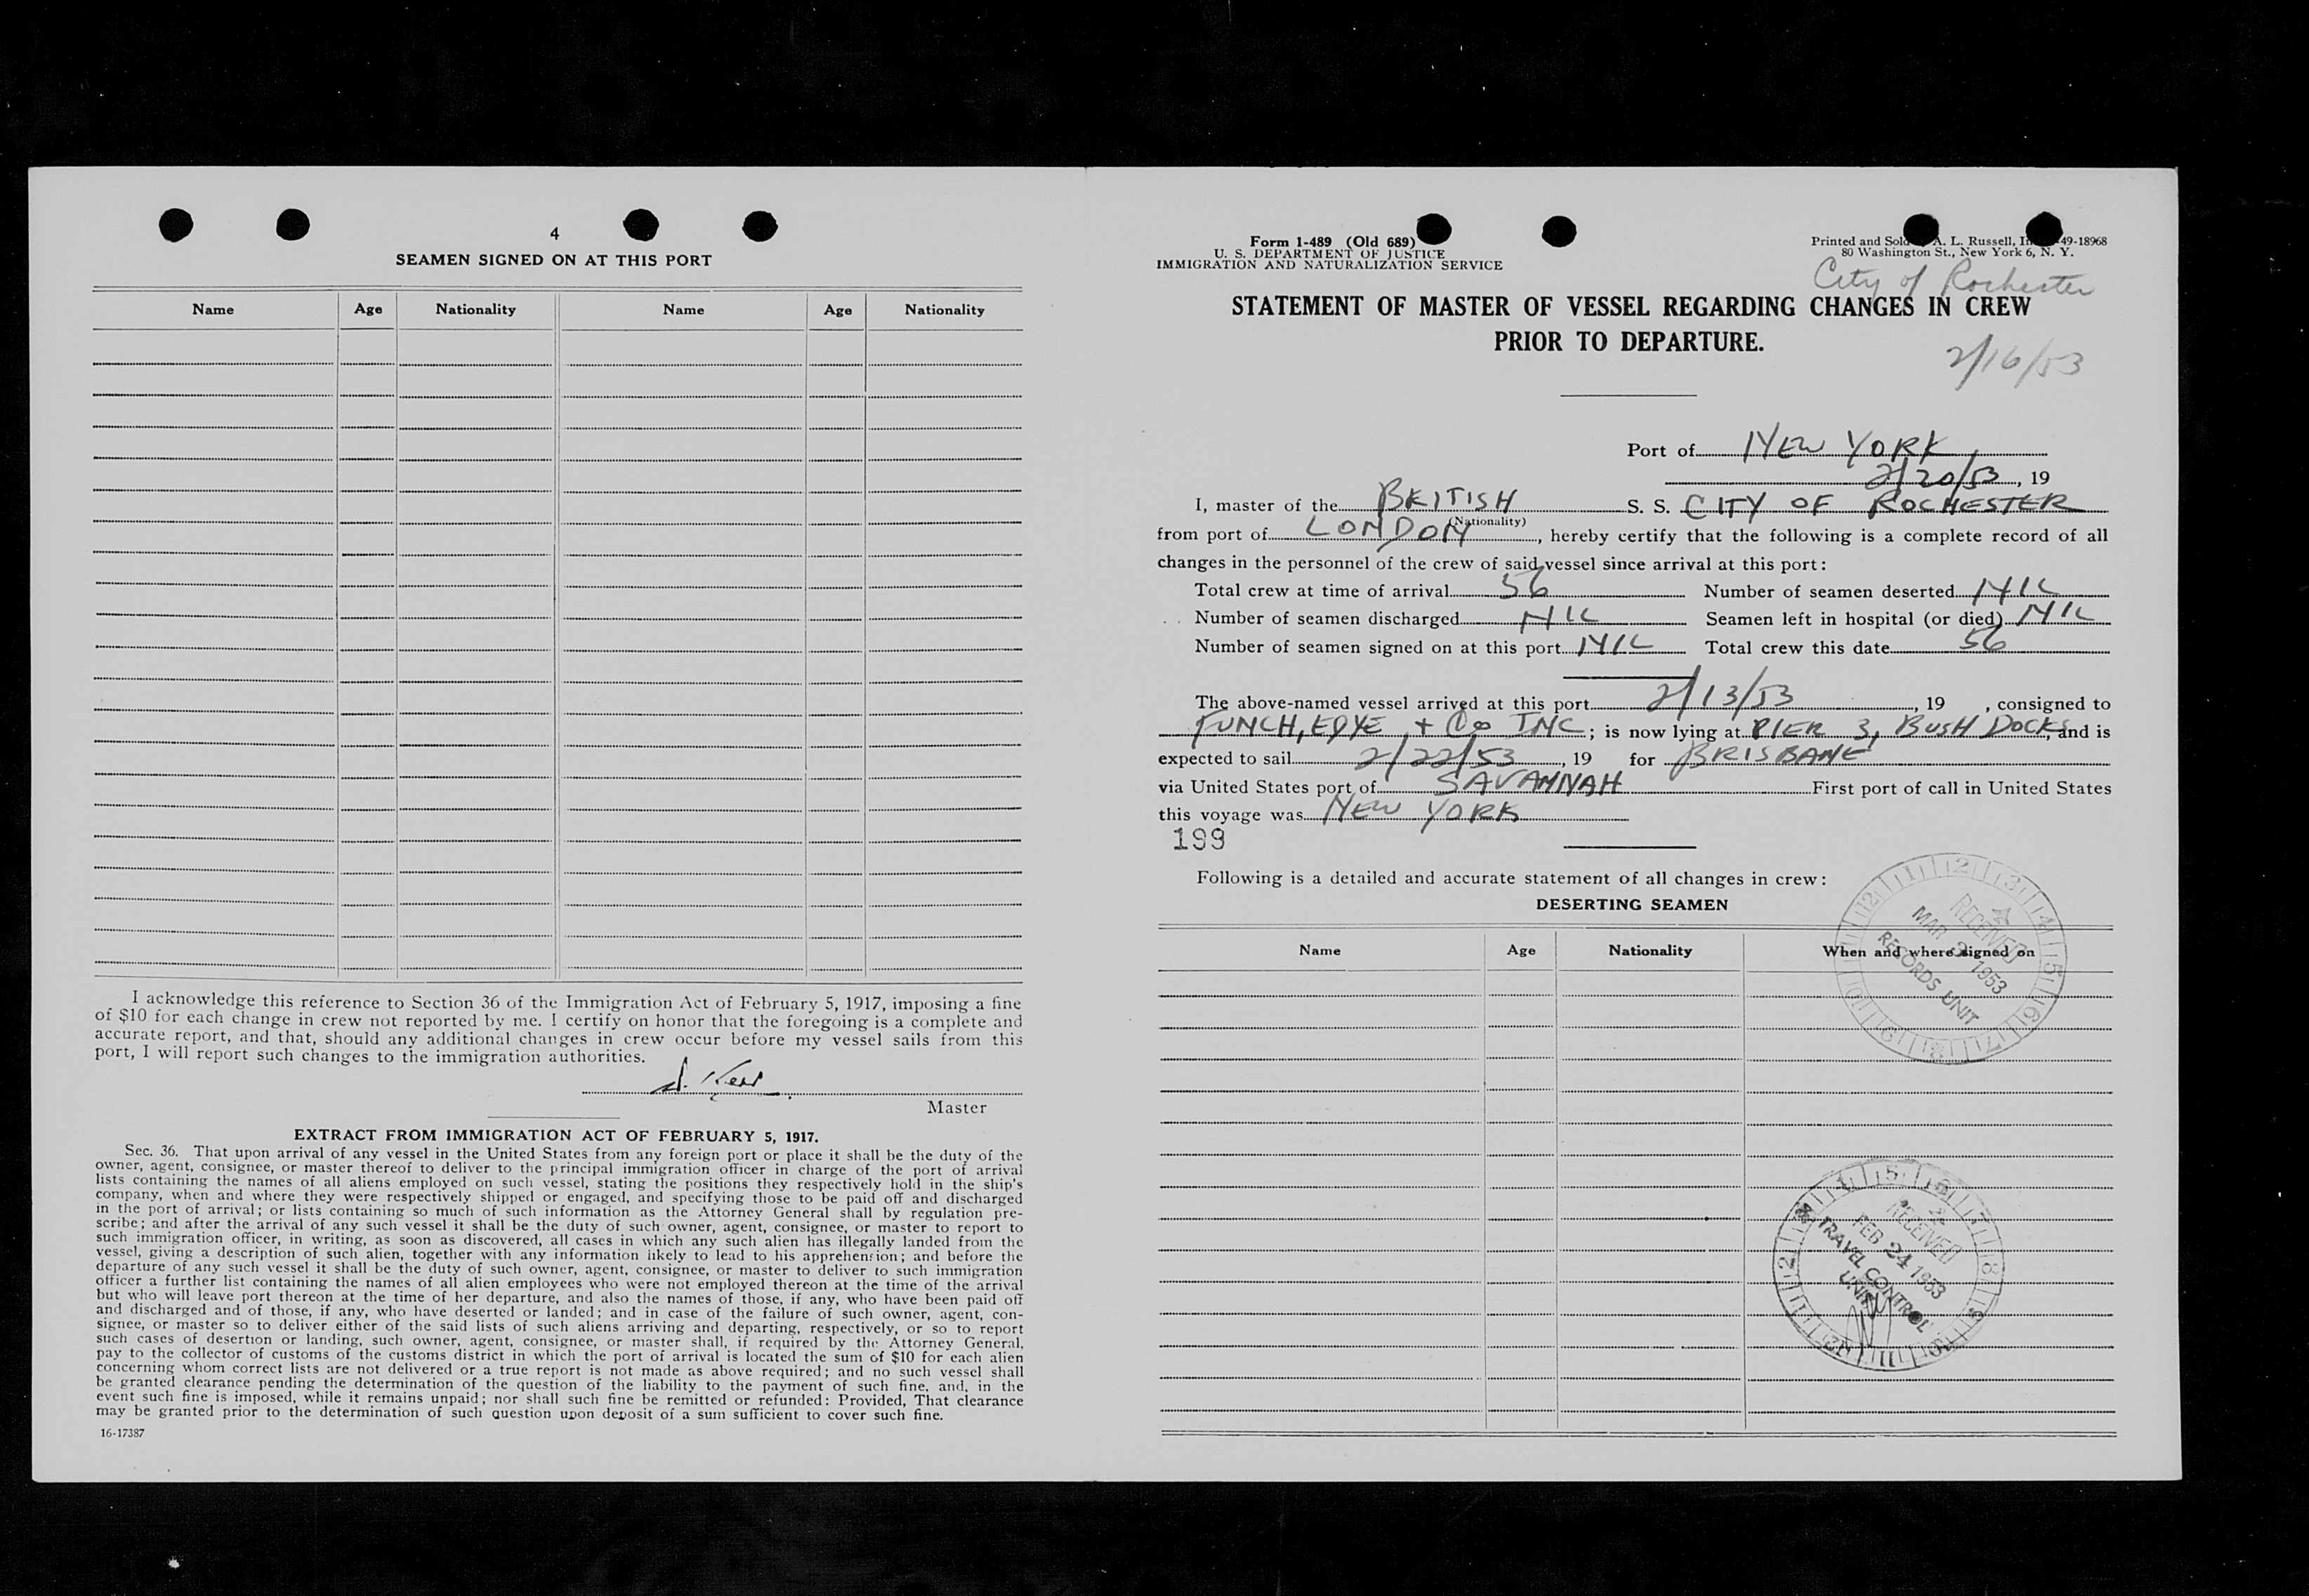 4
SEAMEN SIGNED ON AT THIS PORT
Name Age Nationality Name Age Nationality
I acknowledge this reference to Section 36 of the Immigration Act of February 5, 1917, imposing a fine
of $10 for each change in crew not reported by me. I certify on honor that the foregoing is a complete and
accurate report, and that, should any additional changes in crew occur before my vessel sails from this
port, I will report such changes to the immigration authorities.
Kerr
Master
EXTRACT FROM IMMIGRATION ACT OF FEBRUARY 5, 1917.
Sec. 36. That upon arrival of any vessel in the United States from any foreign port or place it shall be the duty of the
owner, agent, consignee, or master thereof to deliver to the principal immigration officer in charge of the port of arrival
lists containing the names of all aliens employed on such vessel, stating the positions they respectively hold in the ship's
company, when and where they were respectively shipped or engaged, and specifying those to be paid off and discharged
in the port of arrival; or lists containing so much of such information as the Attorney General shall by regulation pre-
scribe; and after the arrival of any such vessel it shall be the duty of such owner, agent, consignee, or master to report to
such immigration officer, in writing, as soon as discovered, all cases in which any such alien has illegally landed from the
vessel, giving a description of such alien, together with any information likely to lead to his apprehension; and before the
departure of any such vessel it shall be the duty of such owner, agent, consignee, or master to deliver to such immigration
officer a further list containing the names of all alien employees who were not employed thereon at the time of the arrival
but who will leave port thereon at the time of her departure, and also the names of those, if any, who have been paid off
and discharged and of those, if any, who have deserted or landed; and in case of the failure of such owner, agent, con-
signee, or master so to deliver either of the said lists of such aliens arriving and departing, respectively, or so to report
such cases of desertion or landing, such owner, agent, consignee, or master shall, if required by the Attorney General,
pay to the collector of customs of the customs district in which the port of arrival is located the sum of $10 for each alien
concerning whom correct lists are not delivered or a true report is not made as above required; and no such vessel shall
be granted clearance pending the determination of the question of the liability to the payment of such fine, and, in the
event such fine is imposed, while it remains unpaid; nor shall such fine be remitted or refunded: Provided, That clearance
may be granted prior to the determination of such question upon deposit of a sum sufficient to cover such fine.
16-17387
Form 1-489 (Old 689)
U. S. DEPARTMENT OF JUSTICE
IMMIGRATION AND NATURALIZATION SERVICE
Printed and Sold A. L. Russell, 49-18968
80 Washington St., New York 6, N. Y.
City of Rochester
STATEMENT OF MASTER OF VESSEL REGARDING CHANGES IN CREW
PRIOR TO DEPARTURE.
2/16/53
Port of NEW YORK
2/20/53, 19
I, master of the BRITISH S. S. CITY OF ROCHESTER
(Nationality)
from port of LONDON, hereby certify that the following is a complete record of all
changes in the personnel of the crew of said vessel since arrival at this port:
Total crew at time of arrival 56 Number of seamen deserted NIL
Number of seamen discharged NIL Seamen left in hospital (or died) NIL
Number of seamen signed on at this port NIL Total crew this date 56
The above-named vessel arrived at this port 2/13/53, 19 , consigned to
FUNCH, EDYE + Co INC; is now lying at PIER 3, BUSH DOCKS, and is
expected to sail 2/22/53, 19 for BRISBANE
via United States port of SAVANNAH First port of call in United States
this voyage was NEW YORK
199
Following is a detailed and accurate statement of all changes in crew:
DESERTING SEAMEN
Name Age Nationality When and where signed on
RECEIVED
MAR 1953
RECORDS UNIT
RECEIVED
FEB 24 1953
TRAVEL CONTROL
UNIT